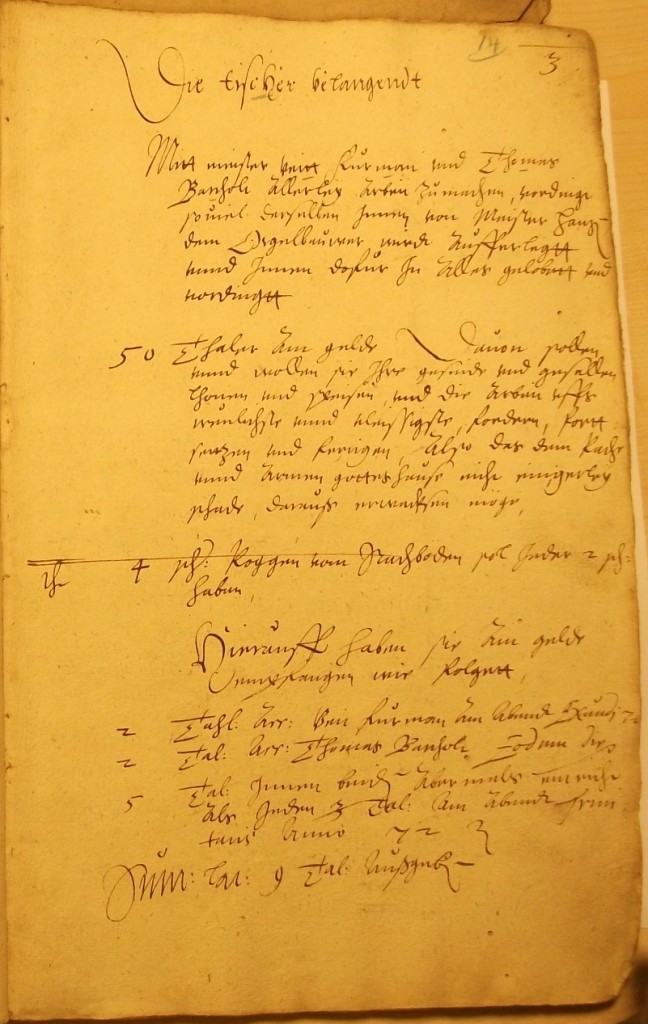 14
3
Die tischer belangendt
Mitt meister Veitt Furman und Thomas
Banholt Allerley Arbeit zumachen, vordingt
souiel derselben Innen von Meister Hans
dem Orgelbauwer wirdt Aufferlegtt
unnd Innen dofur In Alles gelobett und
vordingtt
50 Thaler Am gelde Dauon sollen
unnd wollen sie Ihre gesinde und gesellen
lhonen und speisen, und die Arbeit uffs
unnd vleissigste, fordern, fortt
setzen und fertigen, Also das dem
unnd Armen gotteshause nicht einigerley
schade, darauss erwachsen möge,
4 sch: Roggen vom Rachboden sol Jeder 2 sch:
haben,
Hierauff haben sie Am gelde
empfangen wie folgett,
2 Tahl: Acc: Veit Furman Am Abendt
2 Tal: Acc: Thomas Banholt Eodem die
5 Tal: Innen beiden Abermals
Als Jeden Tal: Am Abendt
Anno 72
Sum: lat: 9 Tal: Außgeben